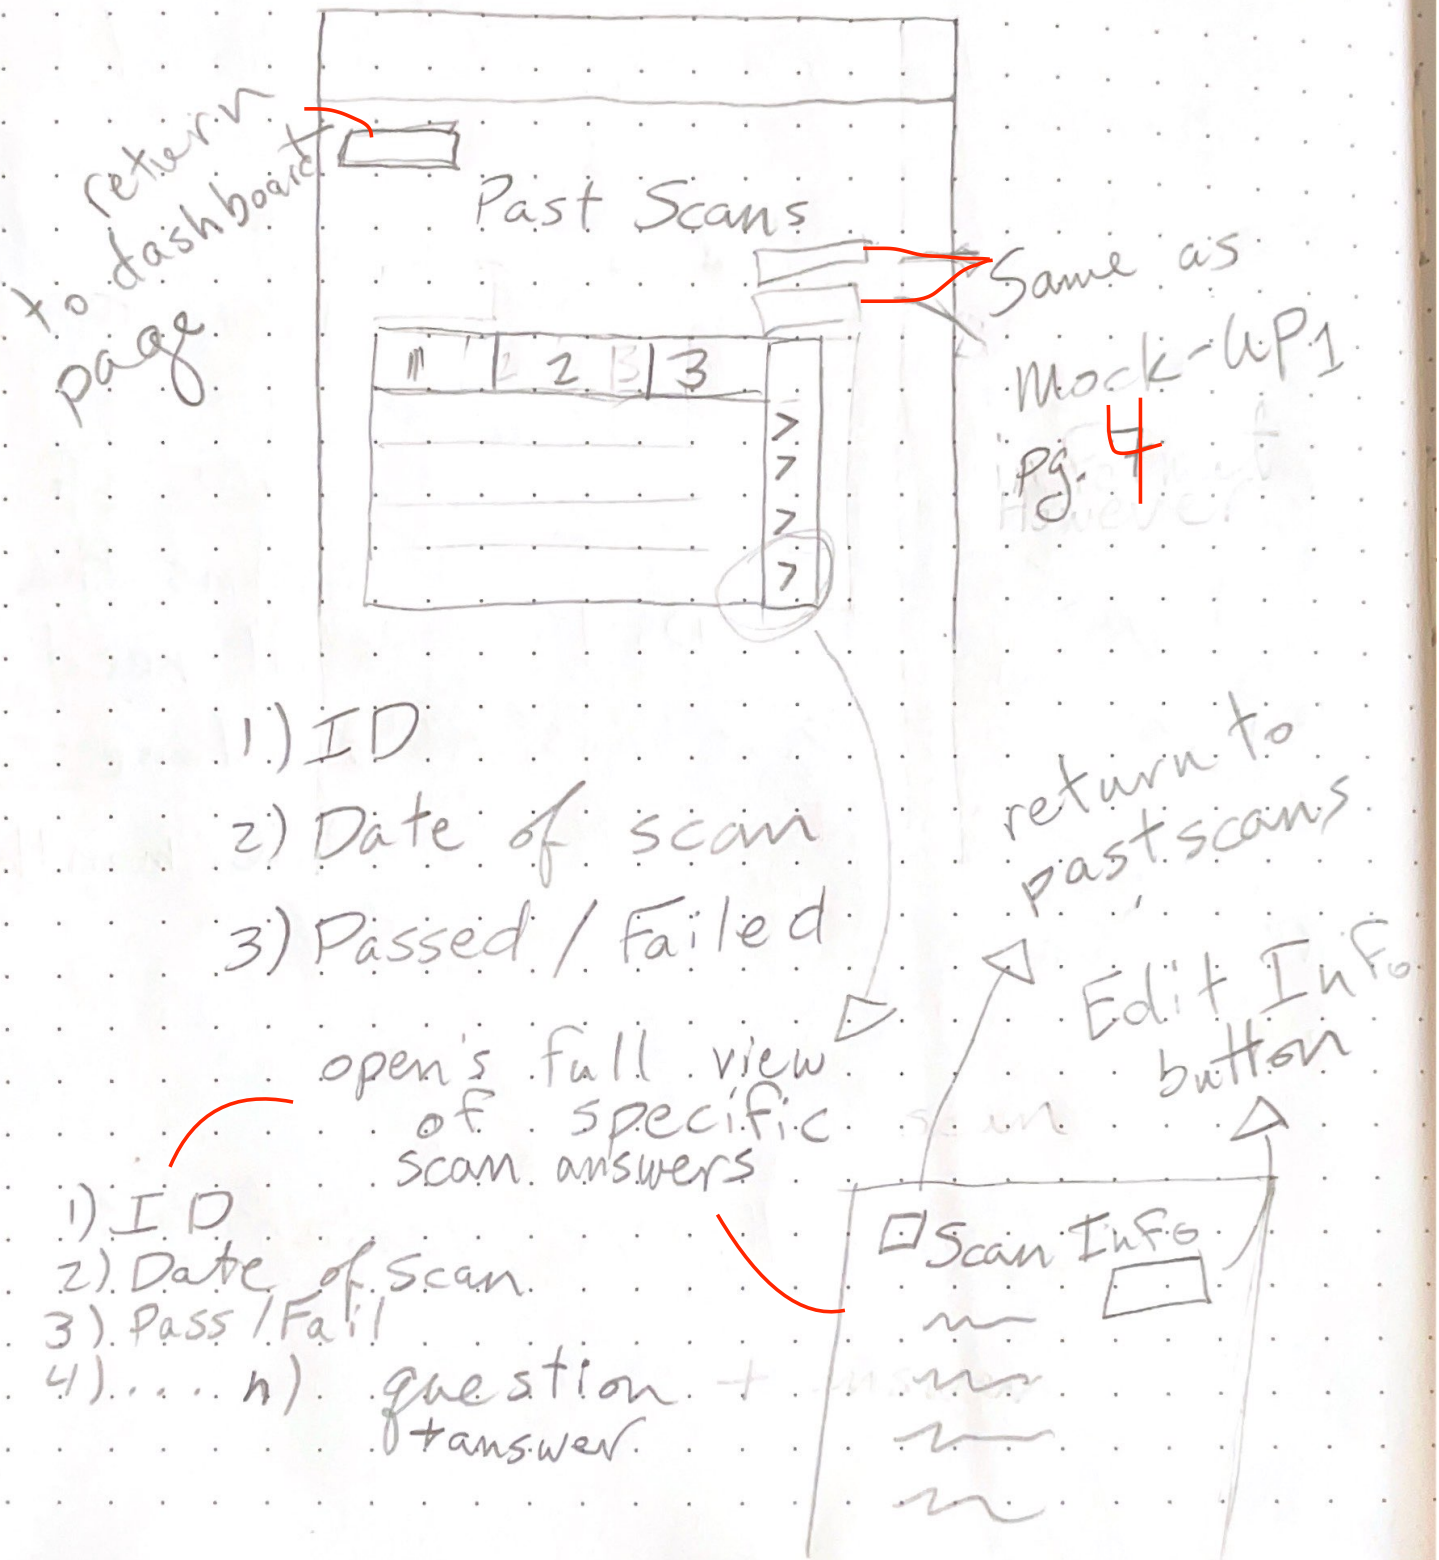 return
to dashboard
page
Past Scans
Same as
Mock-UP1
pg. 4
1 2 3
>
>
>
>
1) ID
2) Date of scan
3) Passed / Failed
return to
past scans
Edit Info
button
open's full view
of specific
scan answers
1) ID
2) Date of scan
3) Pass / Fail
4) .... n) question
+ answer
Scan Info